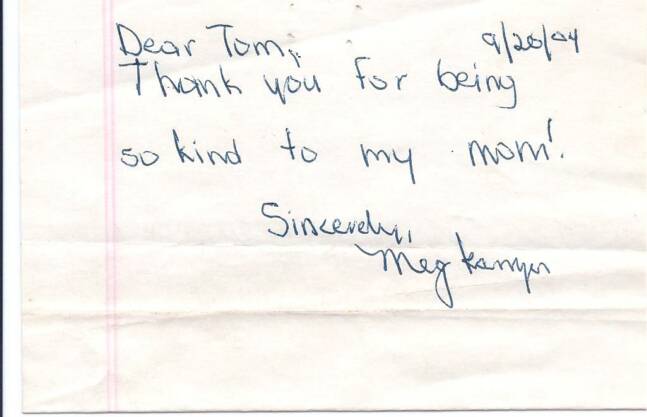 Dear Tom, 9/20/04
Thank you for being
so kind to my mom!
Sincerely,
Meg